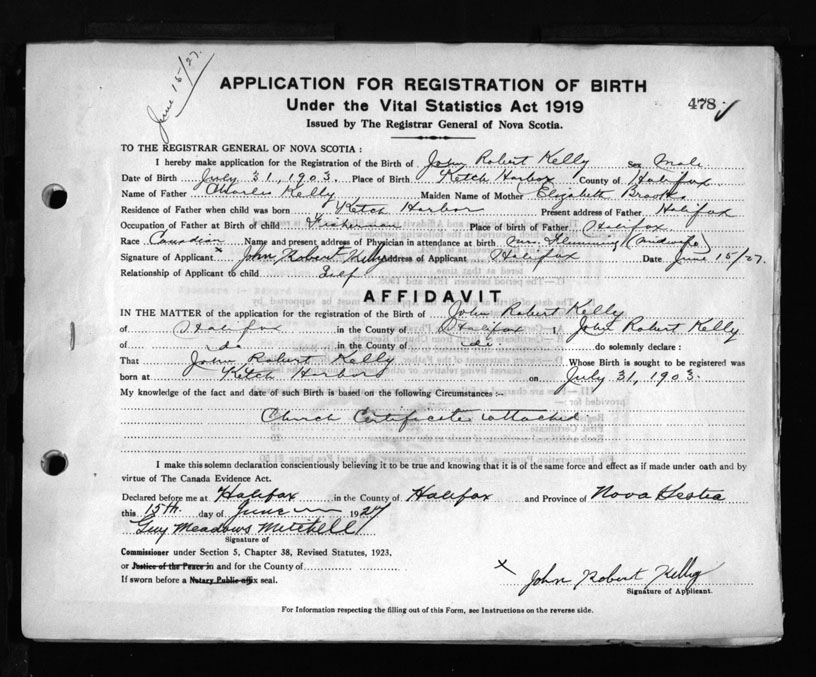 June 15/27.
APPLICATION FOR REGISTRATION OF BIRTH
Under the Vital Statistics Act 1919
478
Issued by The Registrar General of Nova Scotia.
TO THE REGISTRAR GENERAL OF NOVA SCOTIA :
I hereby make application for the Registration of the Birth of John Robert Kelly Sex Male
Date of Birth July 31, 1903. Place of Birth Ketch Harbor County of Halifax
Name of Father Charles Kelly Maiden Name of Mother Elizabeth
Residence of Father when child was born Ketch Harbor Present address of Father Halifax
Occupation of Father at Birth of child Fisherman Place of birth of Father Halifax
Race Canadian Name and present address of Physician in attendance at birth Mrs. Flemming (Midwife)
Signature of Applicant x John Robert Kelly Address of Applicant Halifax Date June 15/27.
Relationship of Applicant to child Self
AFFIDAVIT
IN THE MATTER of the application for the registration of the Birth of John Robert Kelly
of Halifax in the County of Halifax I, John Robert Kelly
of do in the County of do do solemnly declare :
That John Robert Kelly Whose Birth is sought to be registered was
born at Ketch Harbor on July 31, 1903.
My knowledge of the fact and date of such Birth is based on the following Circumstances :-
Church Certificate attached
I make this solemn declaration conscientiously believing it to be true and knowing that it is of the same force and effect as if made under oath and by
virtue of The Canada Evidence Act.
Declared before me at Halifax in the County of Halifax and Province of Nova Scotia
this 15th day of June 1927
Guy Meadows Mitchell
Signature of
Commissioner under Section 5, Chapter 38, Revised Statutes, 1923.
or Justice of the Peace in and for the County of
If sworn before a Notary Public affix seal.
x John Robert Kelly
Signature of Applicant.
For Information respecting the filling out of this Form, see Instructions on the reverse side.